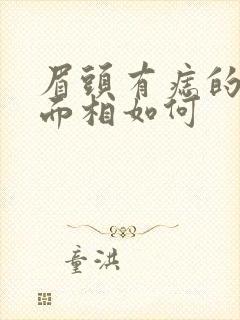 眉頭有痣的
面相如何
童洪